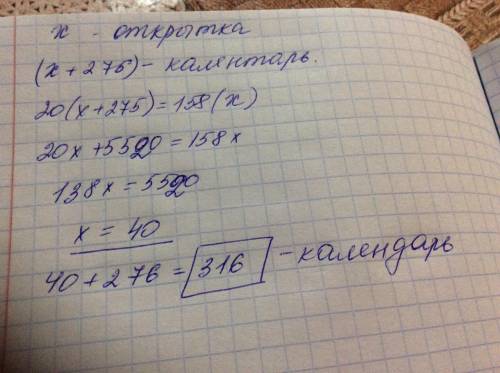 x - открытка
(x + 276) - калентарь.
20(x + 276) = 158(x)
20x + 5520 = 158x
138x = 5520
x = 40
40 + 276 = 316 - календарь